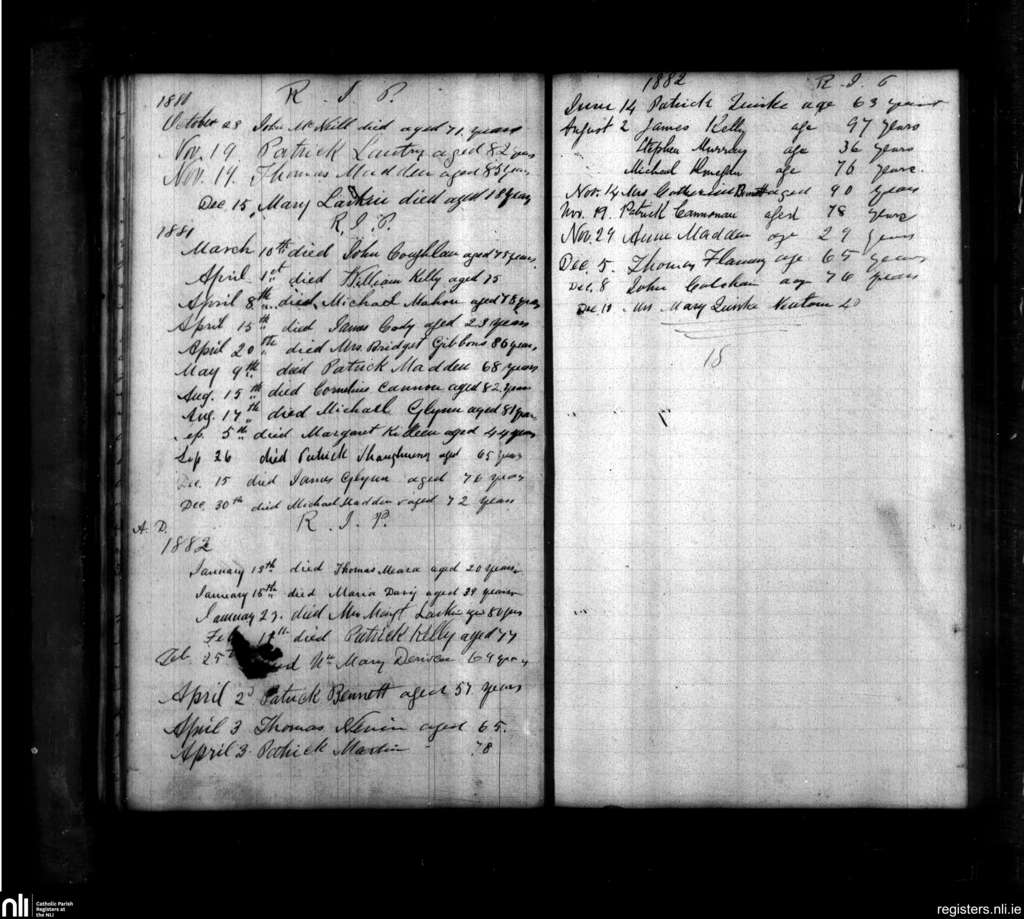 R. I. P.
October 28 John McNeill died aged 71 years
Nov. 19 Patrick aged 82 years
Nov. 19. Thomas Madden aged 85 years
Dec 15, Mary Larkin died aged 18 years
1881 R. I. P.
March 10th died John Coughlan aged 75 years.
April 1st died William Kelly aged 75
April 8th died Michael Mahon aged 78 years
April 15th died James Cody aged 23 years
April 20th died Mrs. Bridget Gibbons 86 years
May 9th died Patrick Madden 68 years
Aug. 15th died Cornelius Cannon aged 82 years
Aug. 17th died Michael Glynn aged 81 years
Sep. 5th died Margaret Killeen aged 44 years
Sep 26 died Patrick Shaughnessy aged 65 years
Dec. 15 died James Glynn aged 76 years
Dec. 30th died Michael Madden aged 72 years
R. I. P.
A. D.
1882
January 13th died Thomas Meara aged 20 years
January 15th died Maria Davis aged 39 years
January 23. died Mrs Margt Larkin age 80 yrs
Feb 12th died Patrick Kelly aged 77
Feb. 25th Mary 69 years
April 2d Patrick Bennett aged 57 years
April 3 Thomas Nevin aged 65.
April 3 Patrick Martin " 78
1882 R. I. P
June 14 Patrick Quirke age 63 years
August 2 James Kelly age 97 years
Stephen Murray age 36 years
Michael age 76 years.
Nov. 14 Mrs Catherine Bennett aged 90 years
Nov. 19. Patrick Cannonan aged 78 years
Nov. 29 Anne Madden age 29 years
Dec. 5. Thomas Flannery age 65 years
Dec. 8 John Colohan age 76 years
Dec 10 Mrs Mary Quirke Newtown 40
18
nli Catholic Parish
Registers at
the NLI
registers.nli.ie